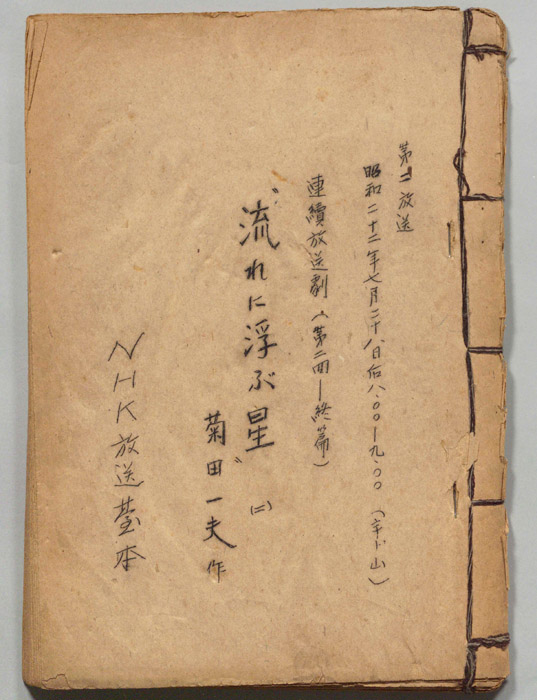 第二放送
昭和二十二年七月二十八日后八.〇〇―九.〇〇
連續放送劇(第二回―終篇)
“流れに浮ぶ星” (二)
菊田一夫 作
NHK放送臺本